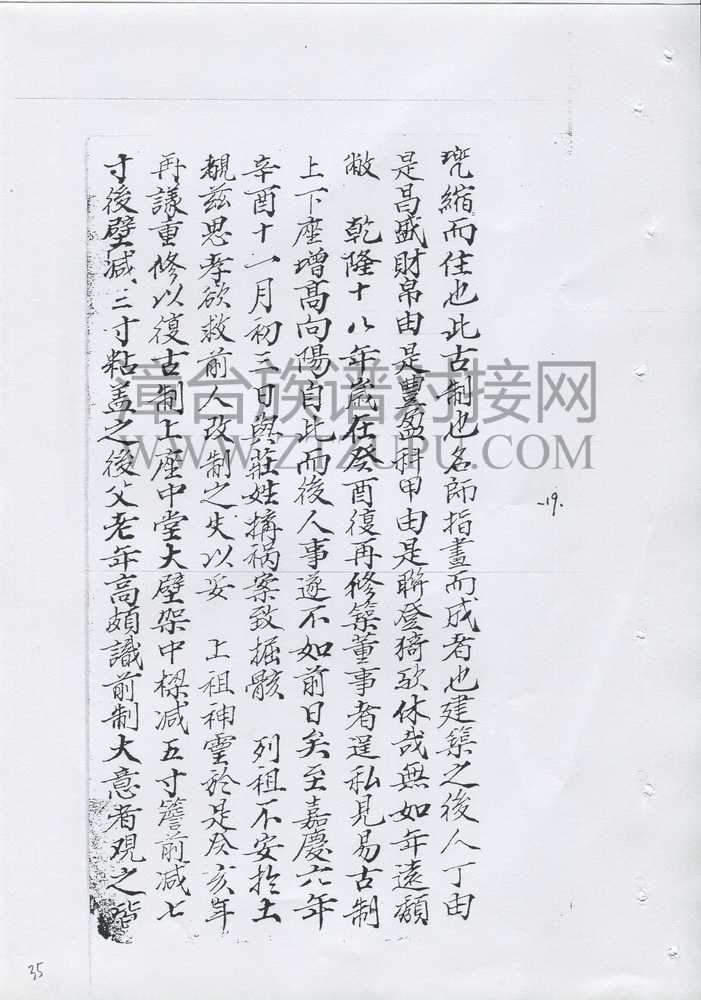 兜縮而住也此古制也名師指畫而成者也建築之後人丁由
是昌盛財帛由是豐盈科甲由是聯登猗歟休哉無如年遠頹
敝 乾隆十八年歲在癸酉復再修築董事者逞私見易古制
上下座增高向陽自此而後人事遂不如前日矣至嘉慶六年
辛酉十一月初三日與莊姓搆祸案致掘骸 列祖不安於土
覩茲思孝欲救前人改制之失以妥 上祖神靈於是癸亥年
再議重修以復古制上座中堂大壁架中樑減五寸簷前減七
寸後壁減三寸粘盖之後父老年高頗識前制大意者观之皆
-19.
35
章台族谱对接网
WWW.ZTZUPU.COM